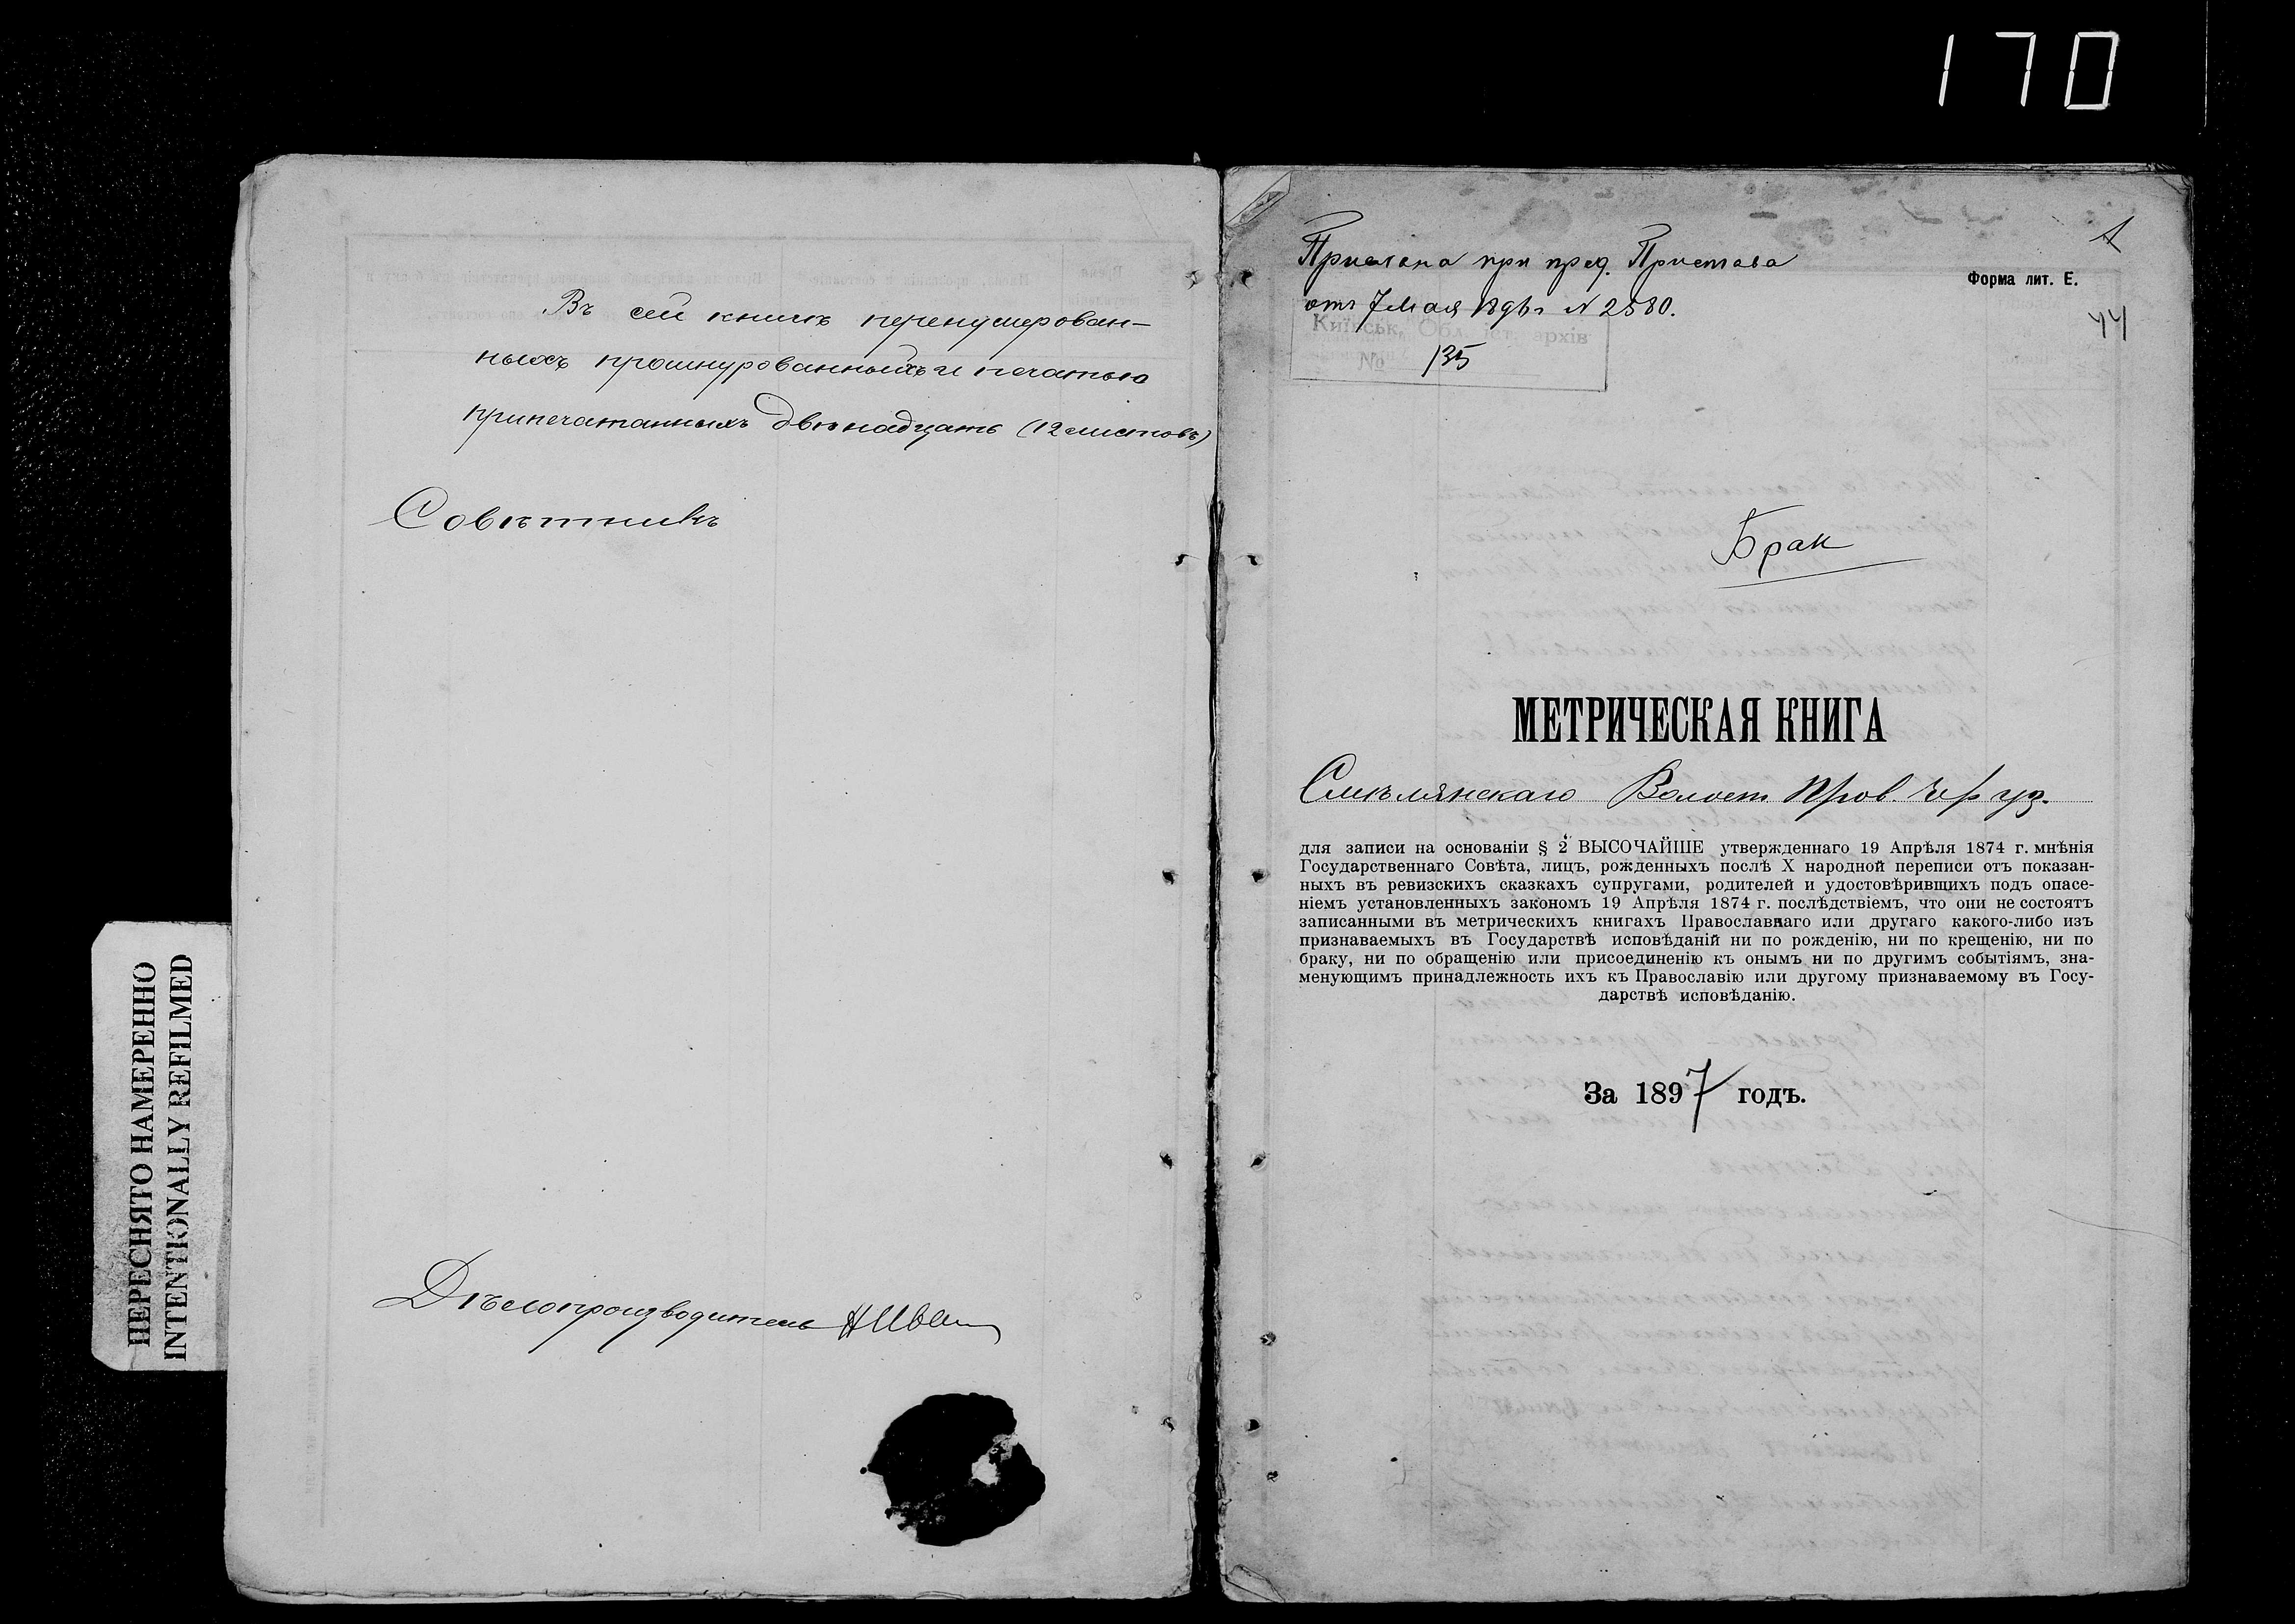 170
ПЕРЕСНЯТО НАМЕРЕННО
INTENTIONALLY REFILMED
Въ сей книгѣ перенумерован-
ныхъ прошнурованныхъ и печатью
припечатанныхъ двѣнадцать (12 листовъ)
Совѣтникъ
Дѣлопроизводитель
1
Прислана при пред. Пристава
отъ 7 Мая 189 г. № 2580.
Форма лит. Е.
44
Київськ. Обл. іст. архів
№ 135
Брак
МЕТРИЧЕСКАЯ КНИГА
Смѣлянскаго Волост. Прав. Чер уз.
для записи на основаніи § 2 ВЫСОЧАЙШЕ утвержденнаго 19 Апрѣля 1874 г. мнѣнія
Государственнаго Совѣта, лицъ, рожденныхъ послѣ X народной переписи отъ показан-
ныхъ въ ревизскихъ сказкахъ супругами, родителей и удостовѣривщихъ подъ опасе-
ніемъ установленныхъ закономъ 19 Апрѣля 1874 г. послѣдствіемъ, что они не состоятъ
записанными въ метрическихъ книгахъ Православнаго или другаго какого-либо изъ
признаваемыхъ въ Государствѣ исповѣданій ни по рожденію, ни по крещенію, ни по
браку, ни по обращенію или присоединенію къ онымъ ни по другимъ событіямъ, зна-
менующимъ принадлежность ихъ къ Православію или другому признаваемому въ Госу-
дарствѣ исповѣданію.
За 1897 годъ.